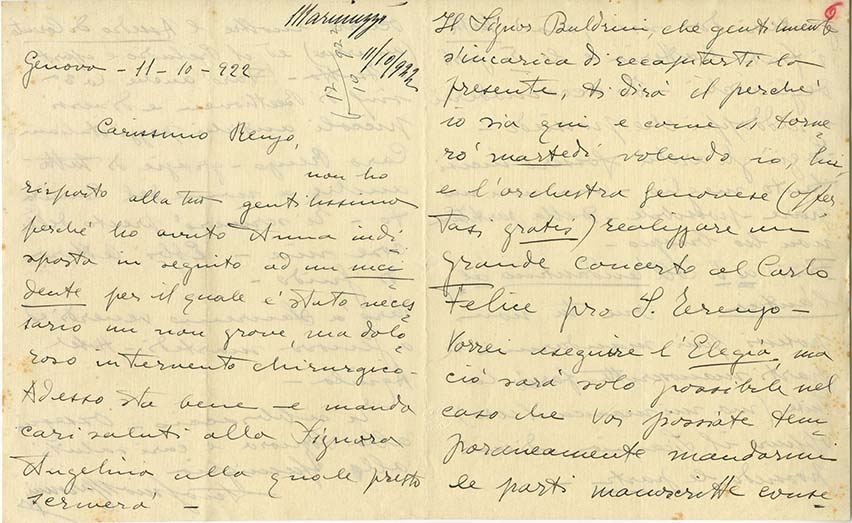 Marinuzzi
11/10/922
12/10 922
Genova - 11-10-922
Carissimo Renzo,
non ho
risposto alla tua gentilissima
perché ho avuto Anna indi
sposta in seguito ad un inci
dente per il quale è stato neces
sario un non grave, ma dolo
roso intervento chirurgico.
Adesso sta bene - e manda
cari saluti alla Signora
Angelina alla quale presto
scriverà -
6
Il Signor Baldrini, che gentilmente
s'incarica di recapitarti la
presente, ti dirà il perché
io sia qui e come vi torne
rò martedì volendo io, lui
e l'orchestra genovese (offer
tasi gratis) realizzare un
grande concerto al Carlo
Felice pro S. Terenzo -
Vorrei eseguire l'Elegia, ma
ciò sarà solo possibile nel
caso che voi possiate tem
poraneamente mandarmi
le parti manoscritte conse